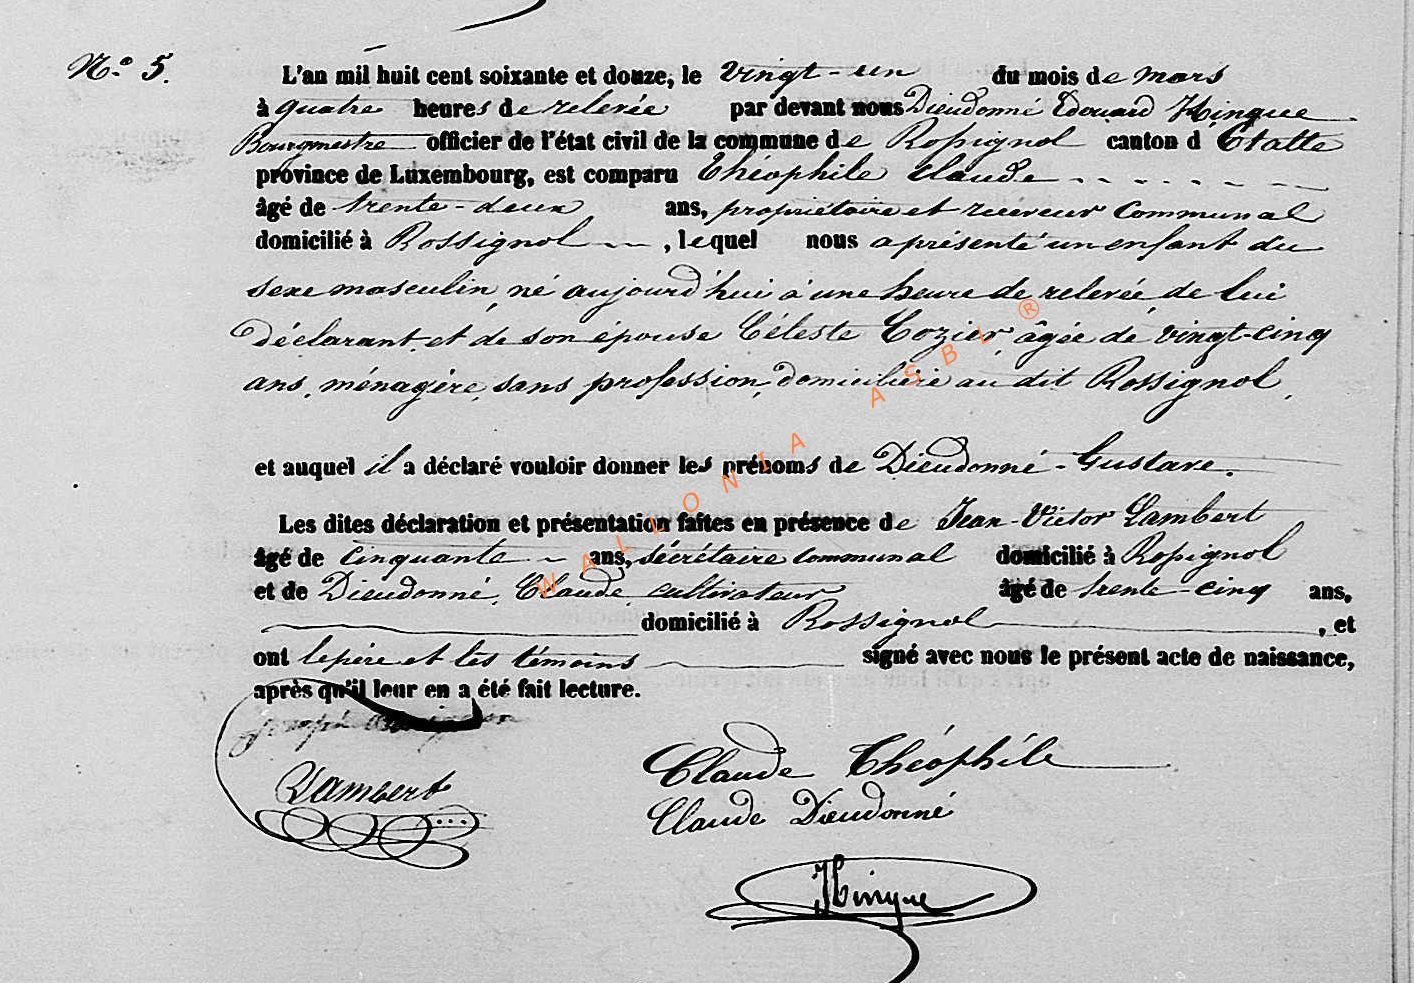 N.° 5.
L'an mil huit cent soixante et douze, le vingt-un du mois de mars
à quatre heures de relevée par devant nous Dieudonné Edouard Hinque
Bourgmestre officier de l'état civil de la commune de Rossignol canton d'Etalle
province de Luxembourg, est comparu Théophile Claude
âgé de trente-deux ans, propriétaire et receveur communal
domicilié à Rossignol, lequel nous a présenté un enfant du
sexe masculin, né aujourd'hui à une heure de relevée de lui
déclarant et de son épouse Céleste Cozier, âgée de vingt-cinq
ans, ménagère, sans profession, domiciliée au dit Rossignol,
et auquel il a déclaré vouloir donner les prénoms de Dieudonné-Gustave.
Les dites déclaration et présentation faites en présence de Jean-Victor Lambert
âgé de cinquante ans, sécrétaire communal domicilié à Rossignol
et de Dieudonné Claude, cultivateur âgé de trente-cinq ans,
domicilié à Rossignol, et
ont le père et les témoins signé avec nous le présent acte de naissance,
après qu'il leur en a été fait lecture.
Lambert
Claude Théophile
Claude Dieudonné
Hinque
WALLONIA ASBL ®